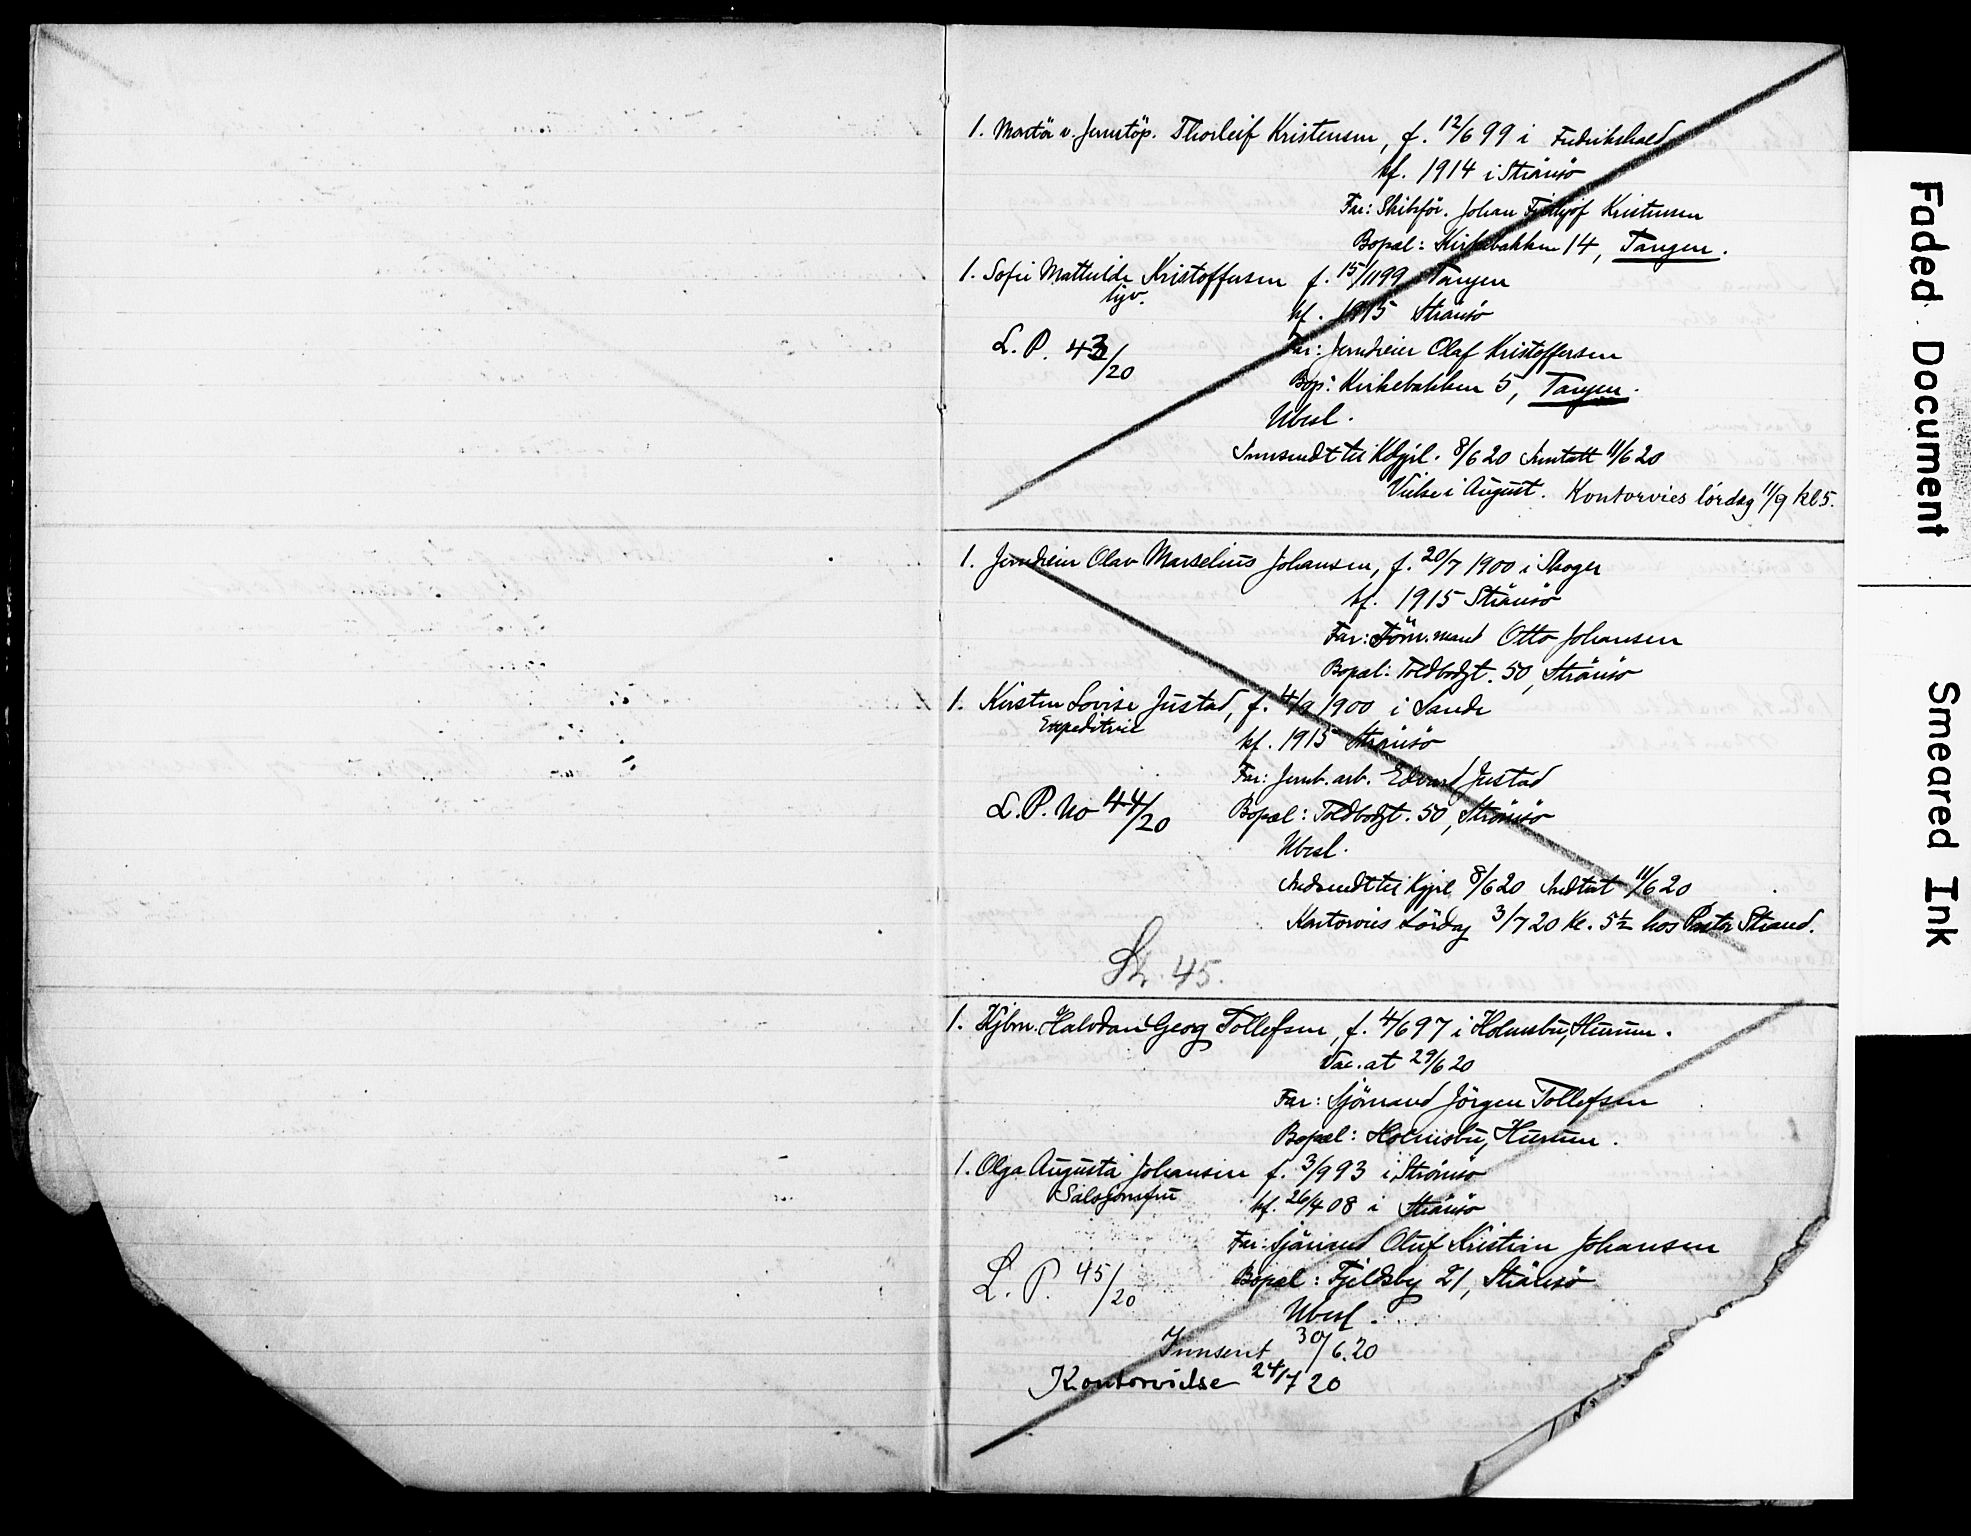 1. Martör v. Jernstöp. Thorleif Kristensen, f. 12/6 99 i Fredrikshald
kf. 1914 i Strömsö
Far: Skibsför. Johan Fridtjof Kristensen
Bopæl: Kirkebakken 14, Tangen.
1. Sofie Mathilde Kristoffersen f. 15/11 99 Tangen
kf. 1915 Strömsö
L. P. 43/20
Far: Jerndreier Olaf Kristoffersen
Bop: Kirkebakken 5, Tangen.
Ubesl.
Innsendt til Kgjl. 8/6 20 Inntatt 11/6 20
Vielse i August. Kontorvies lördag 11/9 kl 5.
1. Jerndreier Olav Marselius Johansen, f. 20/7 1900 i Skoger
kf. 1915 Strömsö
Far: Töm.mand Otto Johansen
Bopæl: Toldbodgt. 50, Strömsö
1. Kirsten Lovise Justad, f. 4/9 1900 i Sande
Expeditrice
kf. 1915 Strömsö
Far: Jernb. arb. Edvard Justad
L. P. No 44/20
Bopæl: Toldbodgt. 50, Strömsö
Ubesl.
Indsendt til Kgjl 8/6 20 Indtat 11/6 20
Kontorvies Lördag 3/7 20 Kl. 5½ hos Pastor Strand.
Sk. 45.
1. Kjbm. Halvdan Georg Tollefsen, f. 4/6 97 i Holmsbu, Hurum.
Vac. at 29/6 20
Far: Sjömand Jörgen Tollefsen
Bopæl: Holmsbu, Hurum.
1. Olga Augusta Johansen f. 3/9 93 i Strömsö
Salsjomfru
kf. 26/4 08 i Strömsö
Far: Sjömand Oluf Kristian Johansen
L. P. 45/20
Bopæl: Fjeldsby 21, Strömsö
Ubesl.
Innsent 30/6.20
Kontorvielse 24/7 20
Faded Document
Smeared Ink